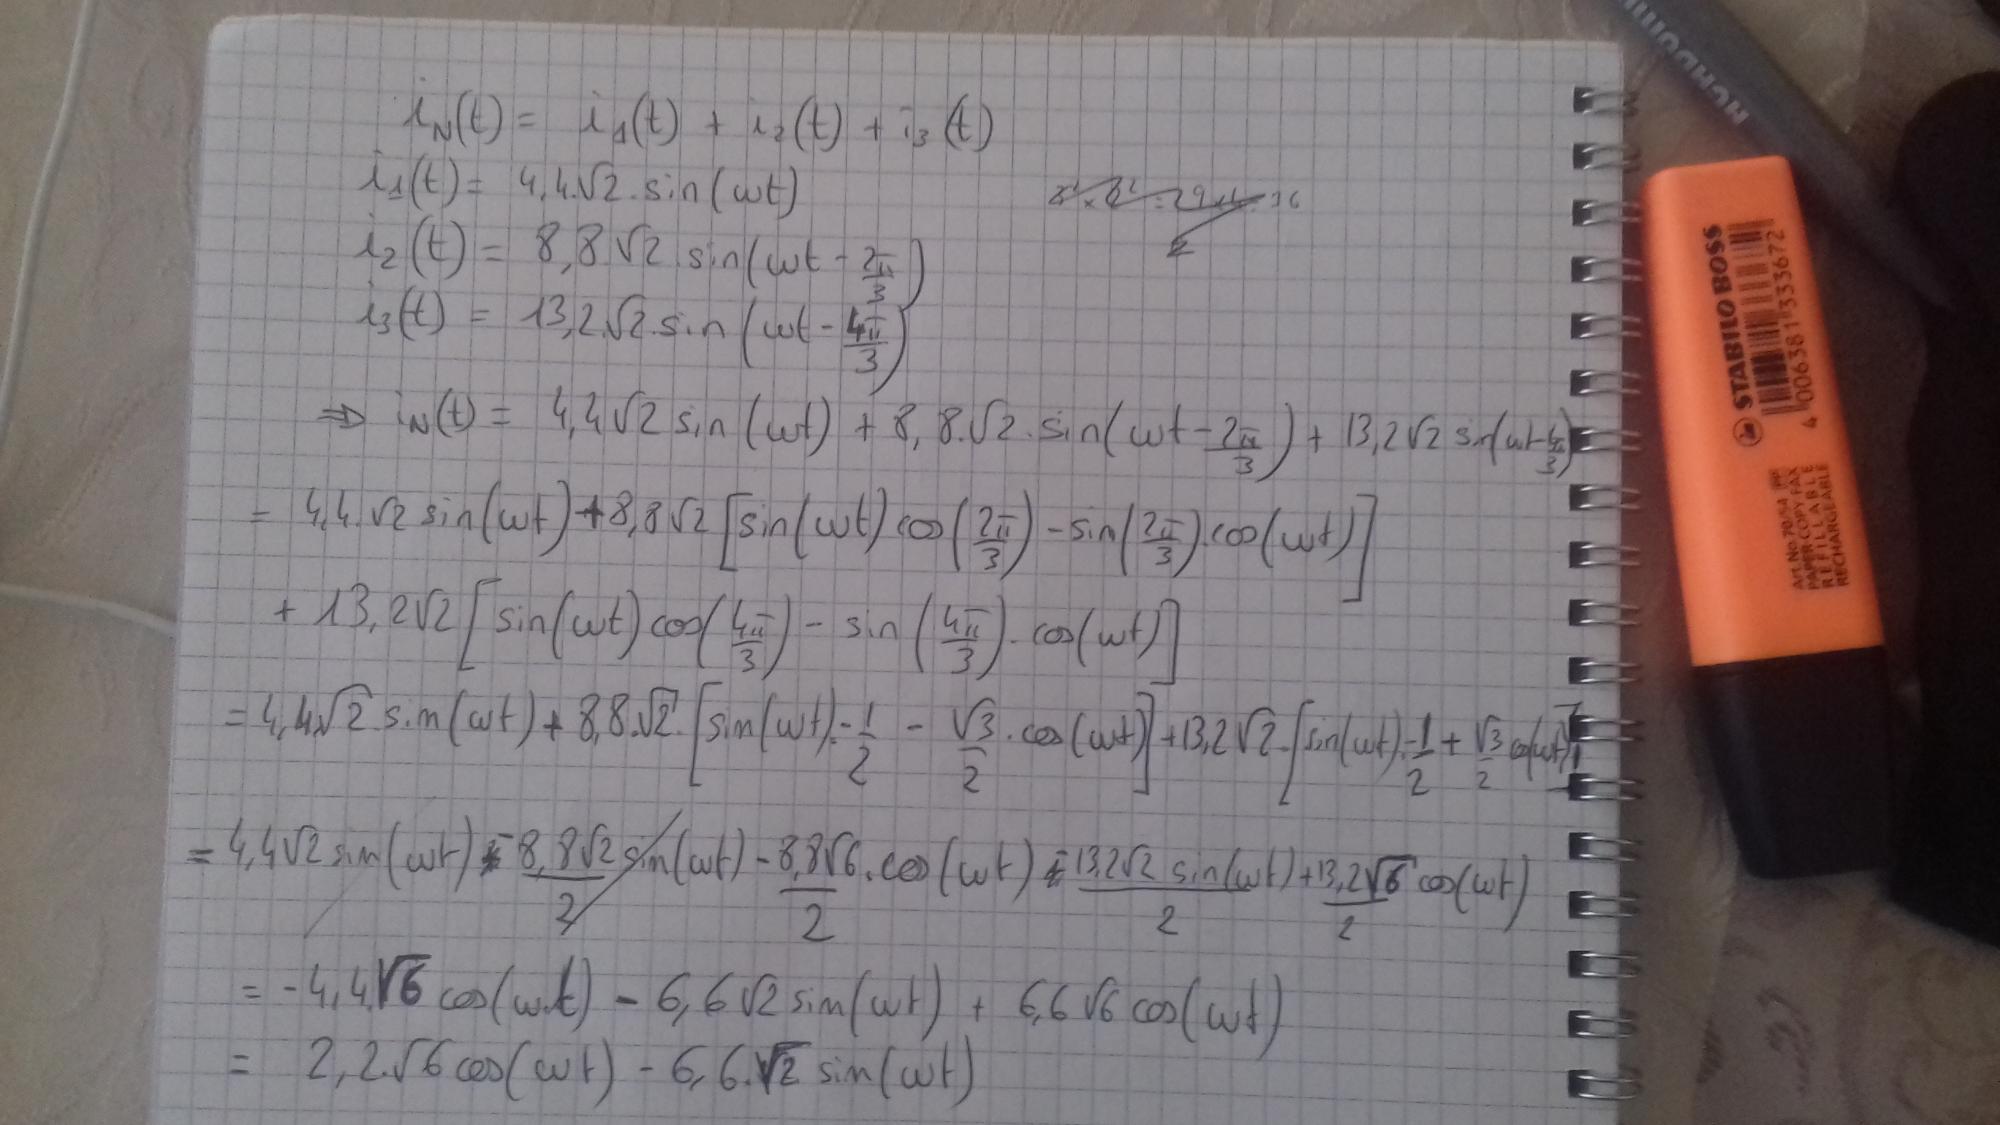 i_N(t) = i_1(t) + i_2(t) + i_3(t)
i_1(t) = 4,4.√2.sin(ωt)
i_2(t) = 8,8√2 sin(ωt - 2π/3)
i_3(t) = 13,2.√2.sin(ωt - 4π/3)
⇒ i_N(t) = 4,4√2 sin(ωt) + 8,8.√2.sin(ωt - 2π/3) + 13,2√2 sin(ωt - 4π/3)
= 4,4.√2 sin(ωt) + 8,8√2 [sin(ωt) cos(2π/3) - sin(2π/3).cos(ωt)]
+ 13,2√2 [sin(ωt) cos(4π/3) - sin(4π/3).cos(ωt)]
= 4,4√2.sin(ωt) + 8,8.√2.[sin(ωt).-1/2 - √3/2.cos(ωt)] + 13,2√2.[sin(ωt).-1/2 + √3/2 cos(ωt)]
= 4,4√2 sin(ωt) - 8,8√2/2 sin(ωt) - 8,8√6/2.cos(ωt) - 13,2√2 sin(ωt)/2 + 13,2√6/2 cos(ωt)
= -4,4.√6 cos(ω.t) - 6,6√2 sin(ωt) + 6,6√6 cos(ωt)
= 2,2.√6 cos(ωt) - 6,6.√2 sin(ωt)
STABILO BOSS
4 006381 333672
Art.No 70/54
PAPER COPY FAX
REFILLABLE
RECHARGEABLE